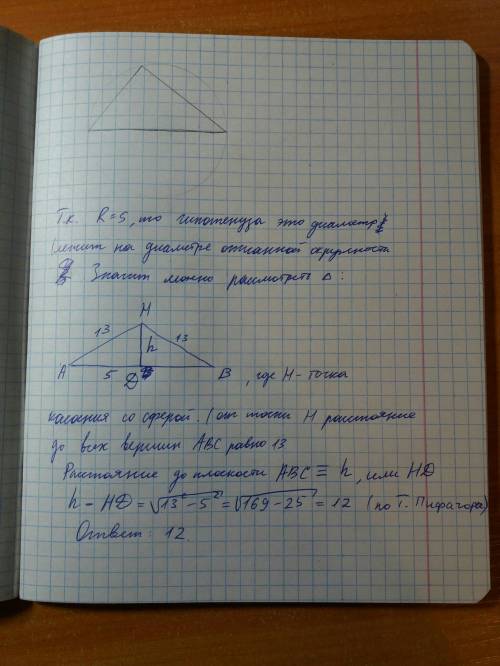 Т.к. R=5, то гипотенуза это диаметр
(лежит на диаметре описанной окружности
Значит можно рассмотреть Δ:
H
13 13
h
A 5 D B , где H - точка
касания со сферой. (от точки H расстояние
до всех вершин ABC равно 13
Расстояние до плоскости ABC ≡ h, или HD
h - HD = √13² - 5² = √169 - 25 = 12 (по Т. Пифагора)
Ответ: 12.